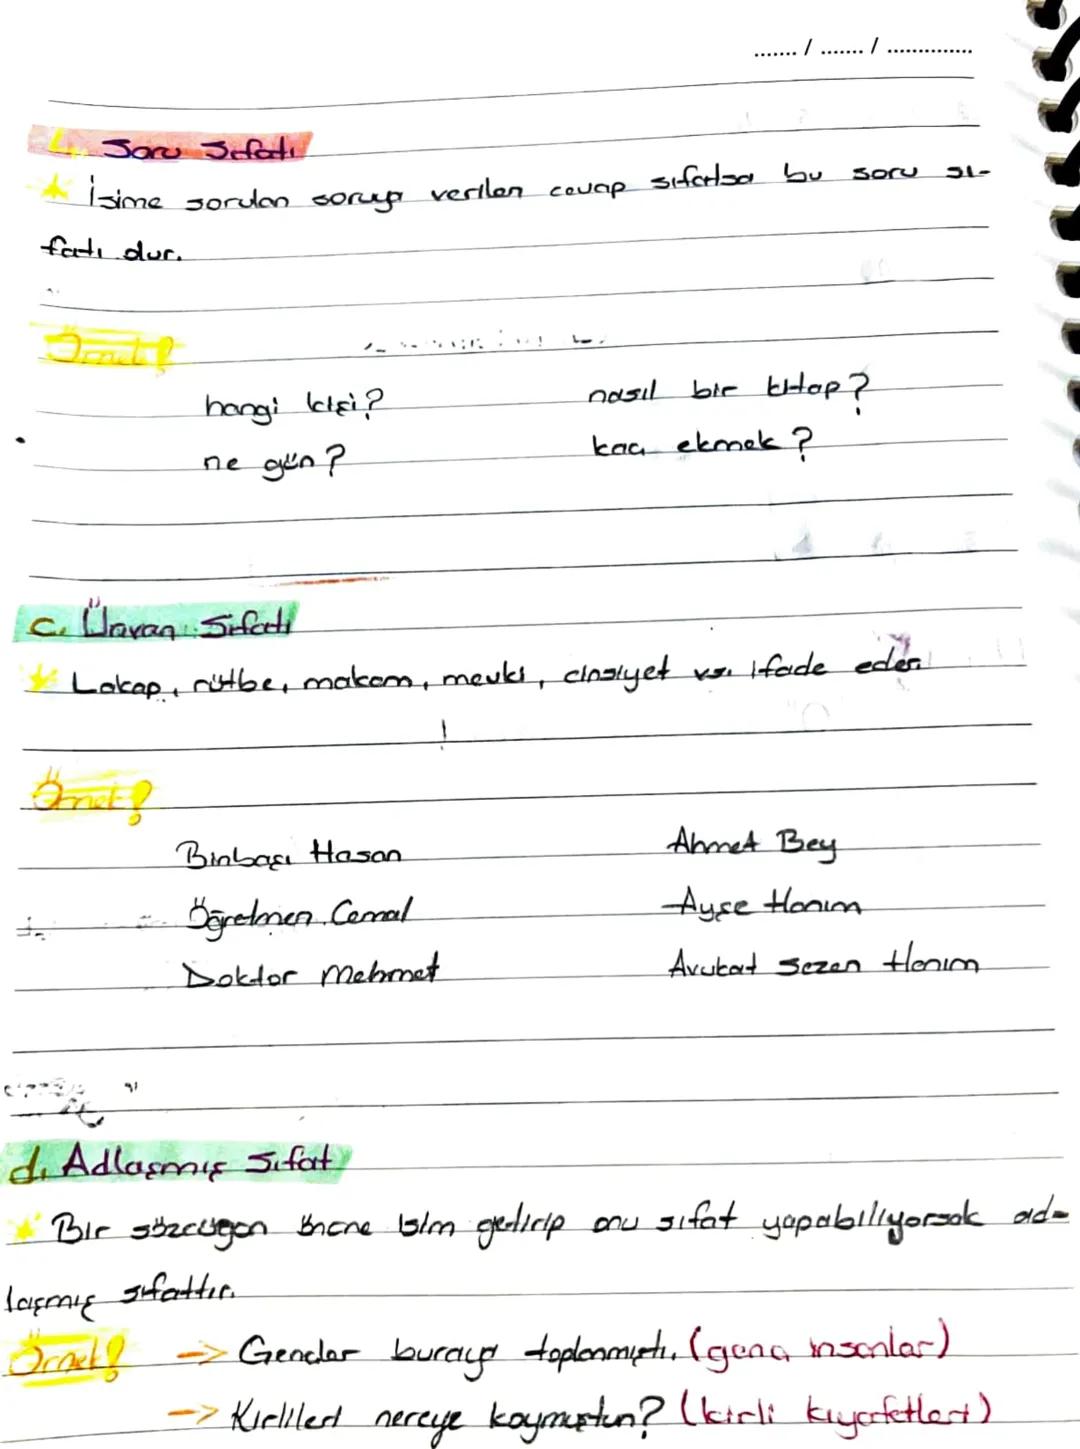 ....... / ....... / ..............
4. Soru Sıfatı
İsime sorulan soruya verilen cevap sıfatsa bu soru sı-
fatı dur.
Örnek!
hangi kişi? nasıl bir kitap?
ne gün? kaç ekmek?
c. Ünvan Sıfatı
Lakap, rütbe, makam, mevki, cinsiyet vs. ifade eden
Örnek!
Binbaşı Hasan Ahmet Bey
Öğretmen Cemal Ayşe Hanım
Doktor Mehmet Avukat Sezen Hanım
d. Adlaşmış Sıfat
Bir sözcüğün önüne isim getirip onu sıfat yapabiliyorsak ad-
laşmış sıfattır.
Örnek! -> Gençler buraya toplanmıştı. (genç insanlar)
-> Kirlileri nereye koymuştun? (kirli kıyafetleri)